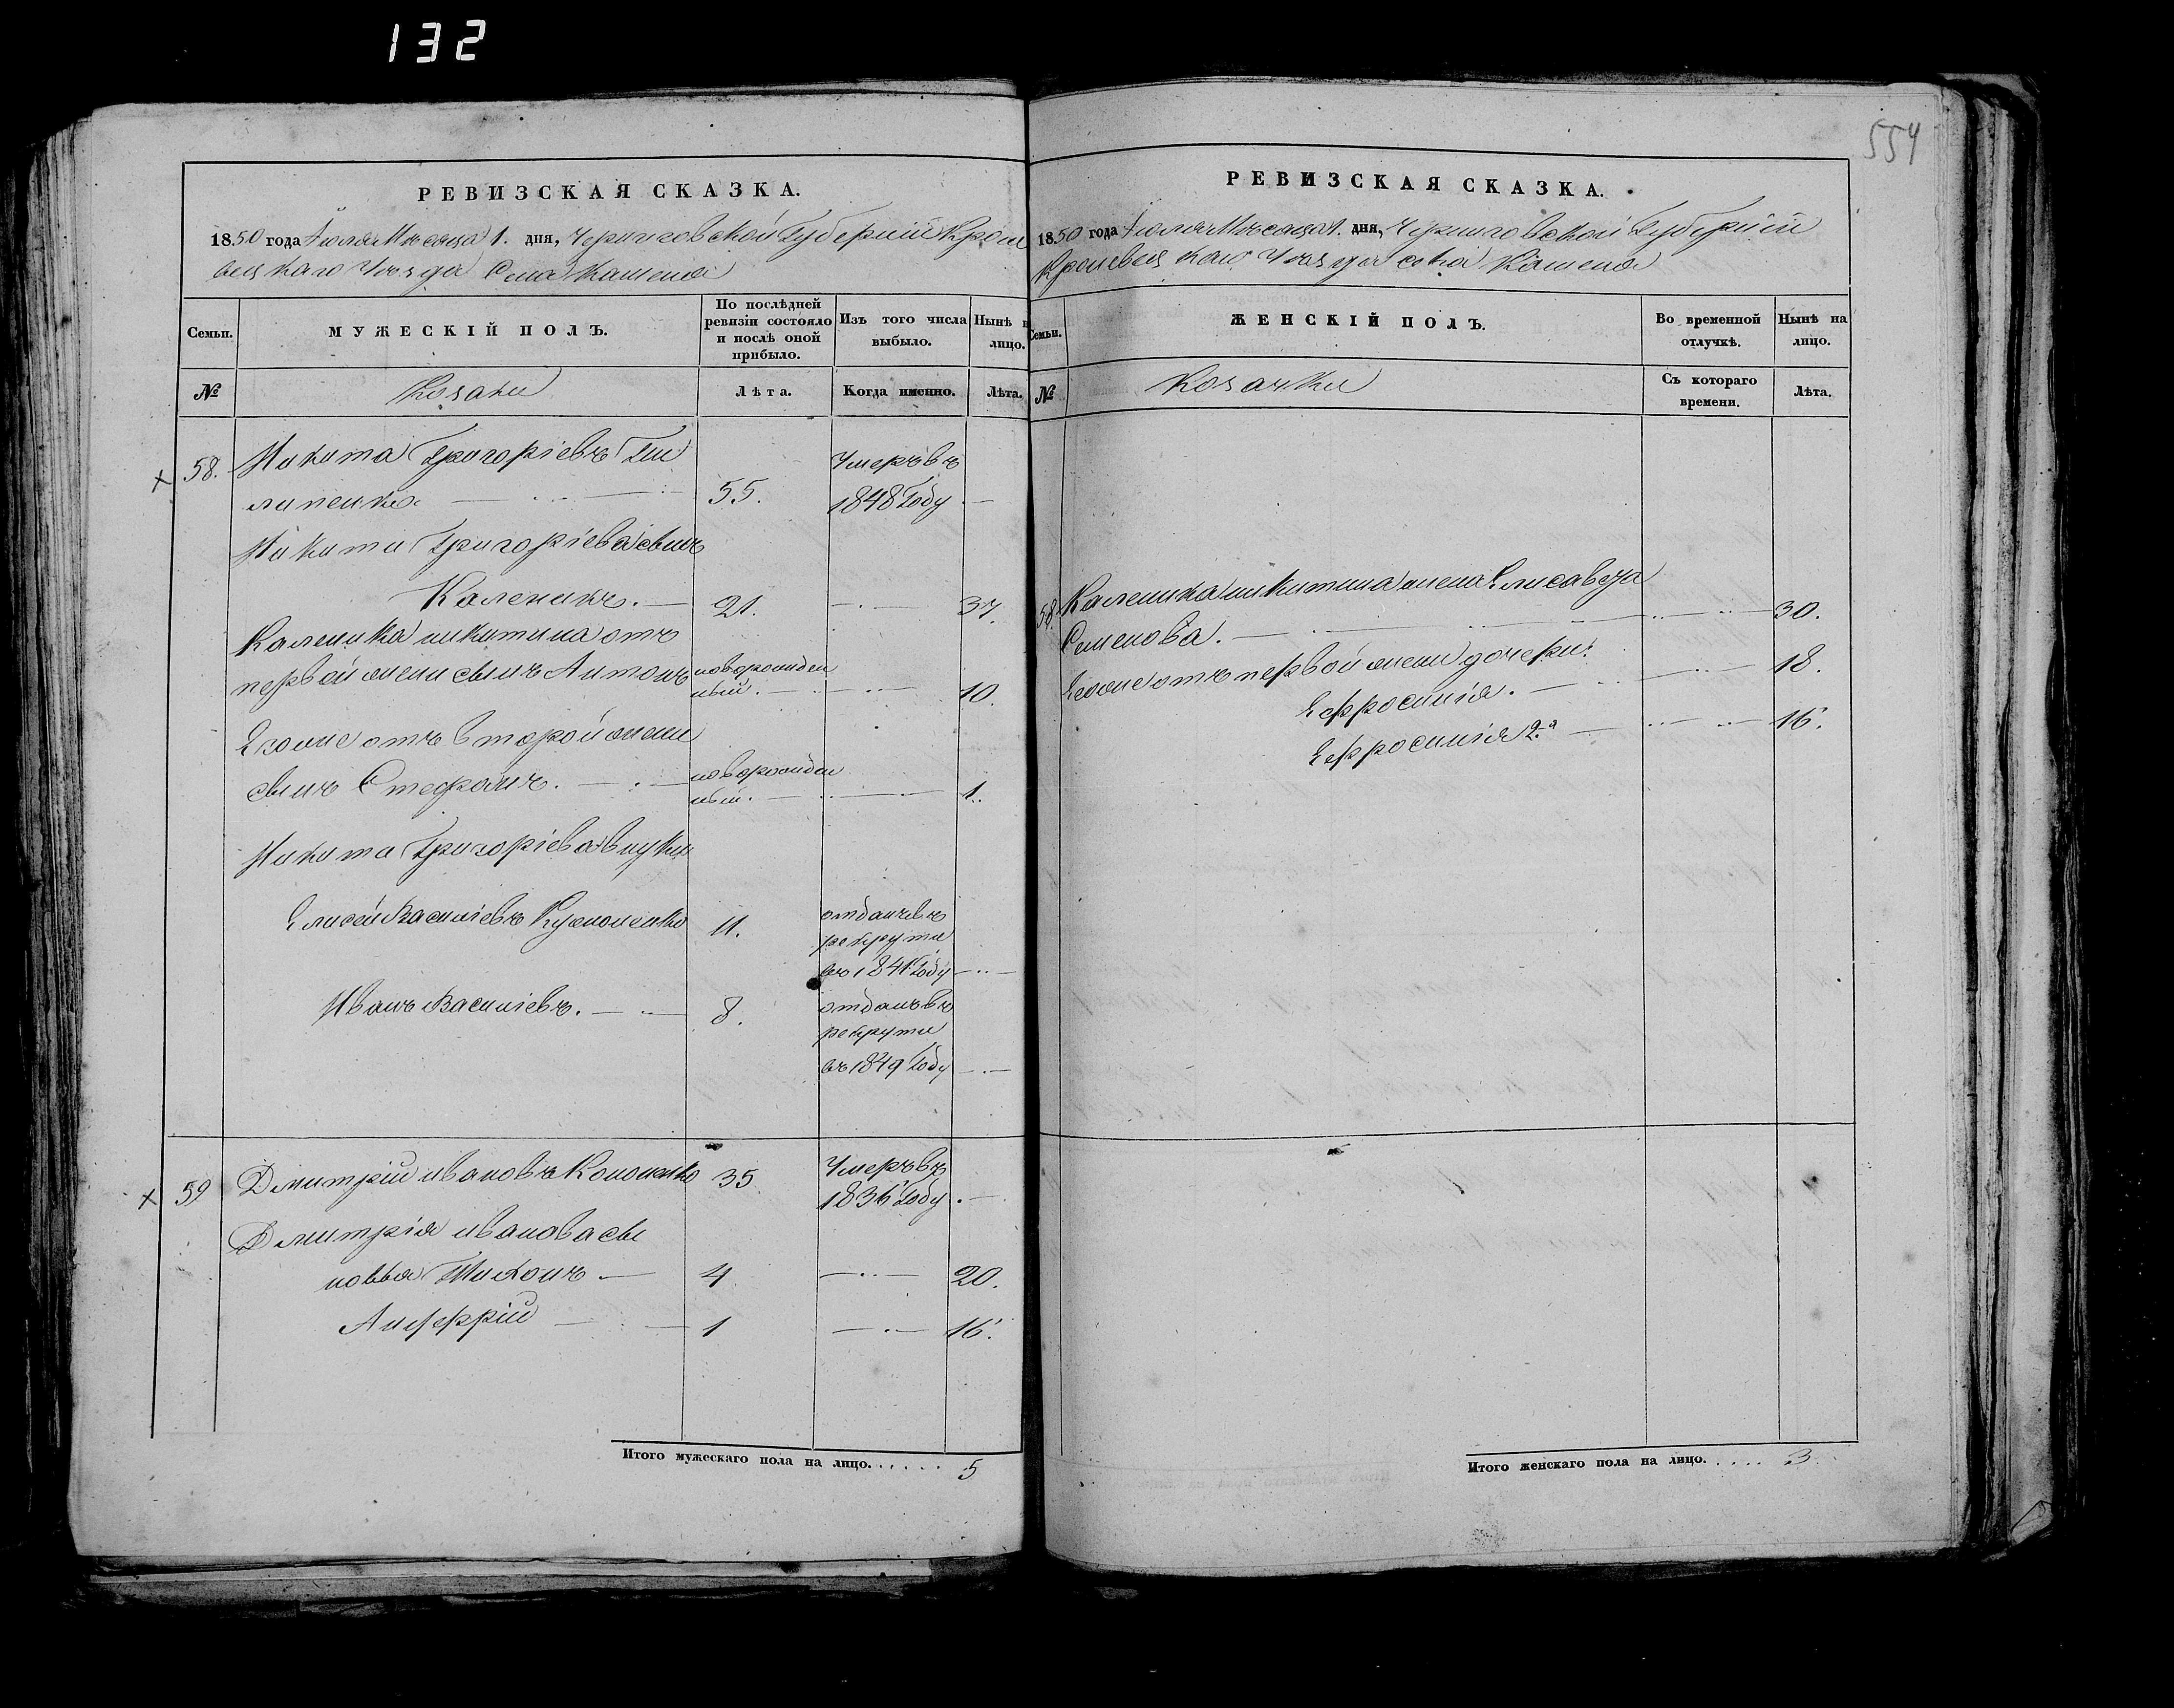 132
554
РЕВИЗСКАЯ СКАЗКА.
1850 года Іюля Мѣсяца 1. дня, Черниговской Губерніи Кроле
вецкаго Уѣзда Села Каменя
Семьи.
МУЖЕСКІЙ ПОЛЪ.
По послѣдней ревизіи состояло и послѣ оной прибыло.
Изъ того числа выбыло.
Нынѣ н лицо.
№
Козаки
Лѣта.
Когда именно.
Лѣта.
58. Никита Григоріевъ
55.
Умеръ въ
1848 Году
Никиты Григоріева сынъ
Каленикъ. 21. 37.
Каленика никитина отъ
первой жены сынъ Антонъ новорожден
ный. 10.
Егоже отъ второй жены
сынъ Стефанъ. новорожден
ный. 1.
Никита Григоріева внуки
Елисей Василіевъ 11.
отданъ въ
рекруты
въ 1841 Году
Иванъ Василіевъ. 8.
отданъ въ
рекруты
въ 1849 Году
59 Дмитрій ивановъ Кононенко 35
Умеръ въ
1836 Году
Дмитрія иванова сы
новья Тихонъ 4 20.
1 16.
Итого мужескаго пола на лицо. 5
РЕВИЗСКАЯ СКАЗКА.
1850 года Іюля Мѣсяца 1. дня, Черниговской Губерніи
Кролевецкаго Уѣзда села Каменя
Семьи.
ЖЕНСКІЙ ПОЛЪ.
Во временной отлучкѣ.
Нынѣ на лицо.
№
Козачки
Съ котораго времени.
Лѣта.
58. Каленика никитина жена Елисавета
Семенова. 30.
Егоже отъ первой жены дочери:
Ефросинія. 18.
Ефросинія 2.я 16.
Итого женскаго пола на лицо. 3